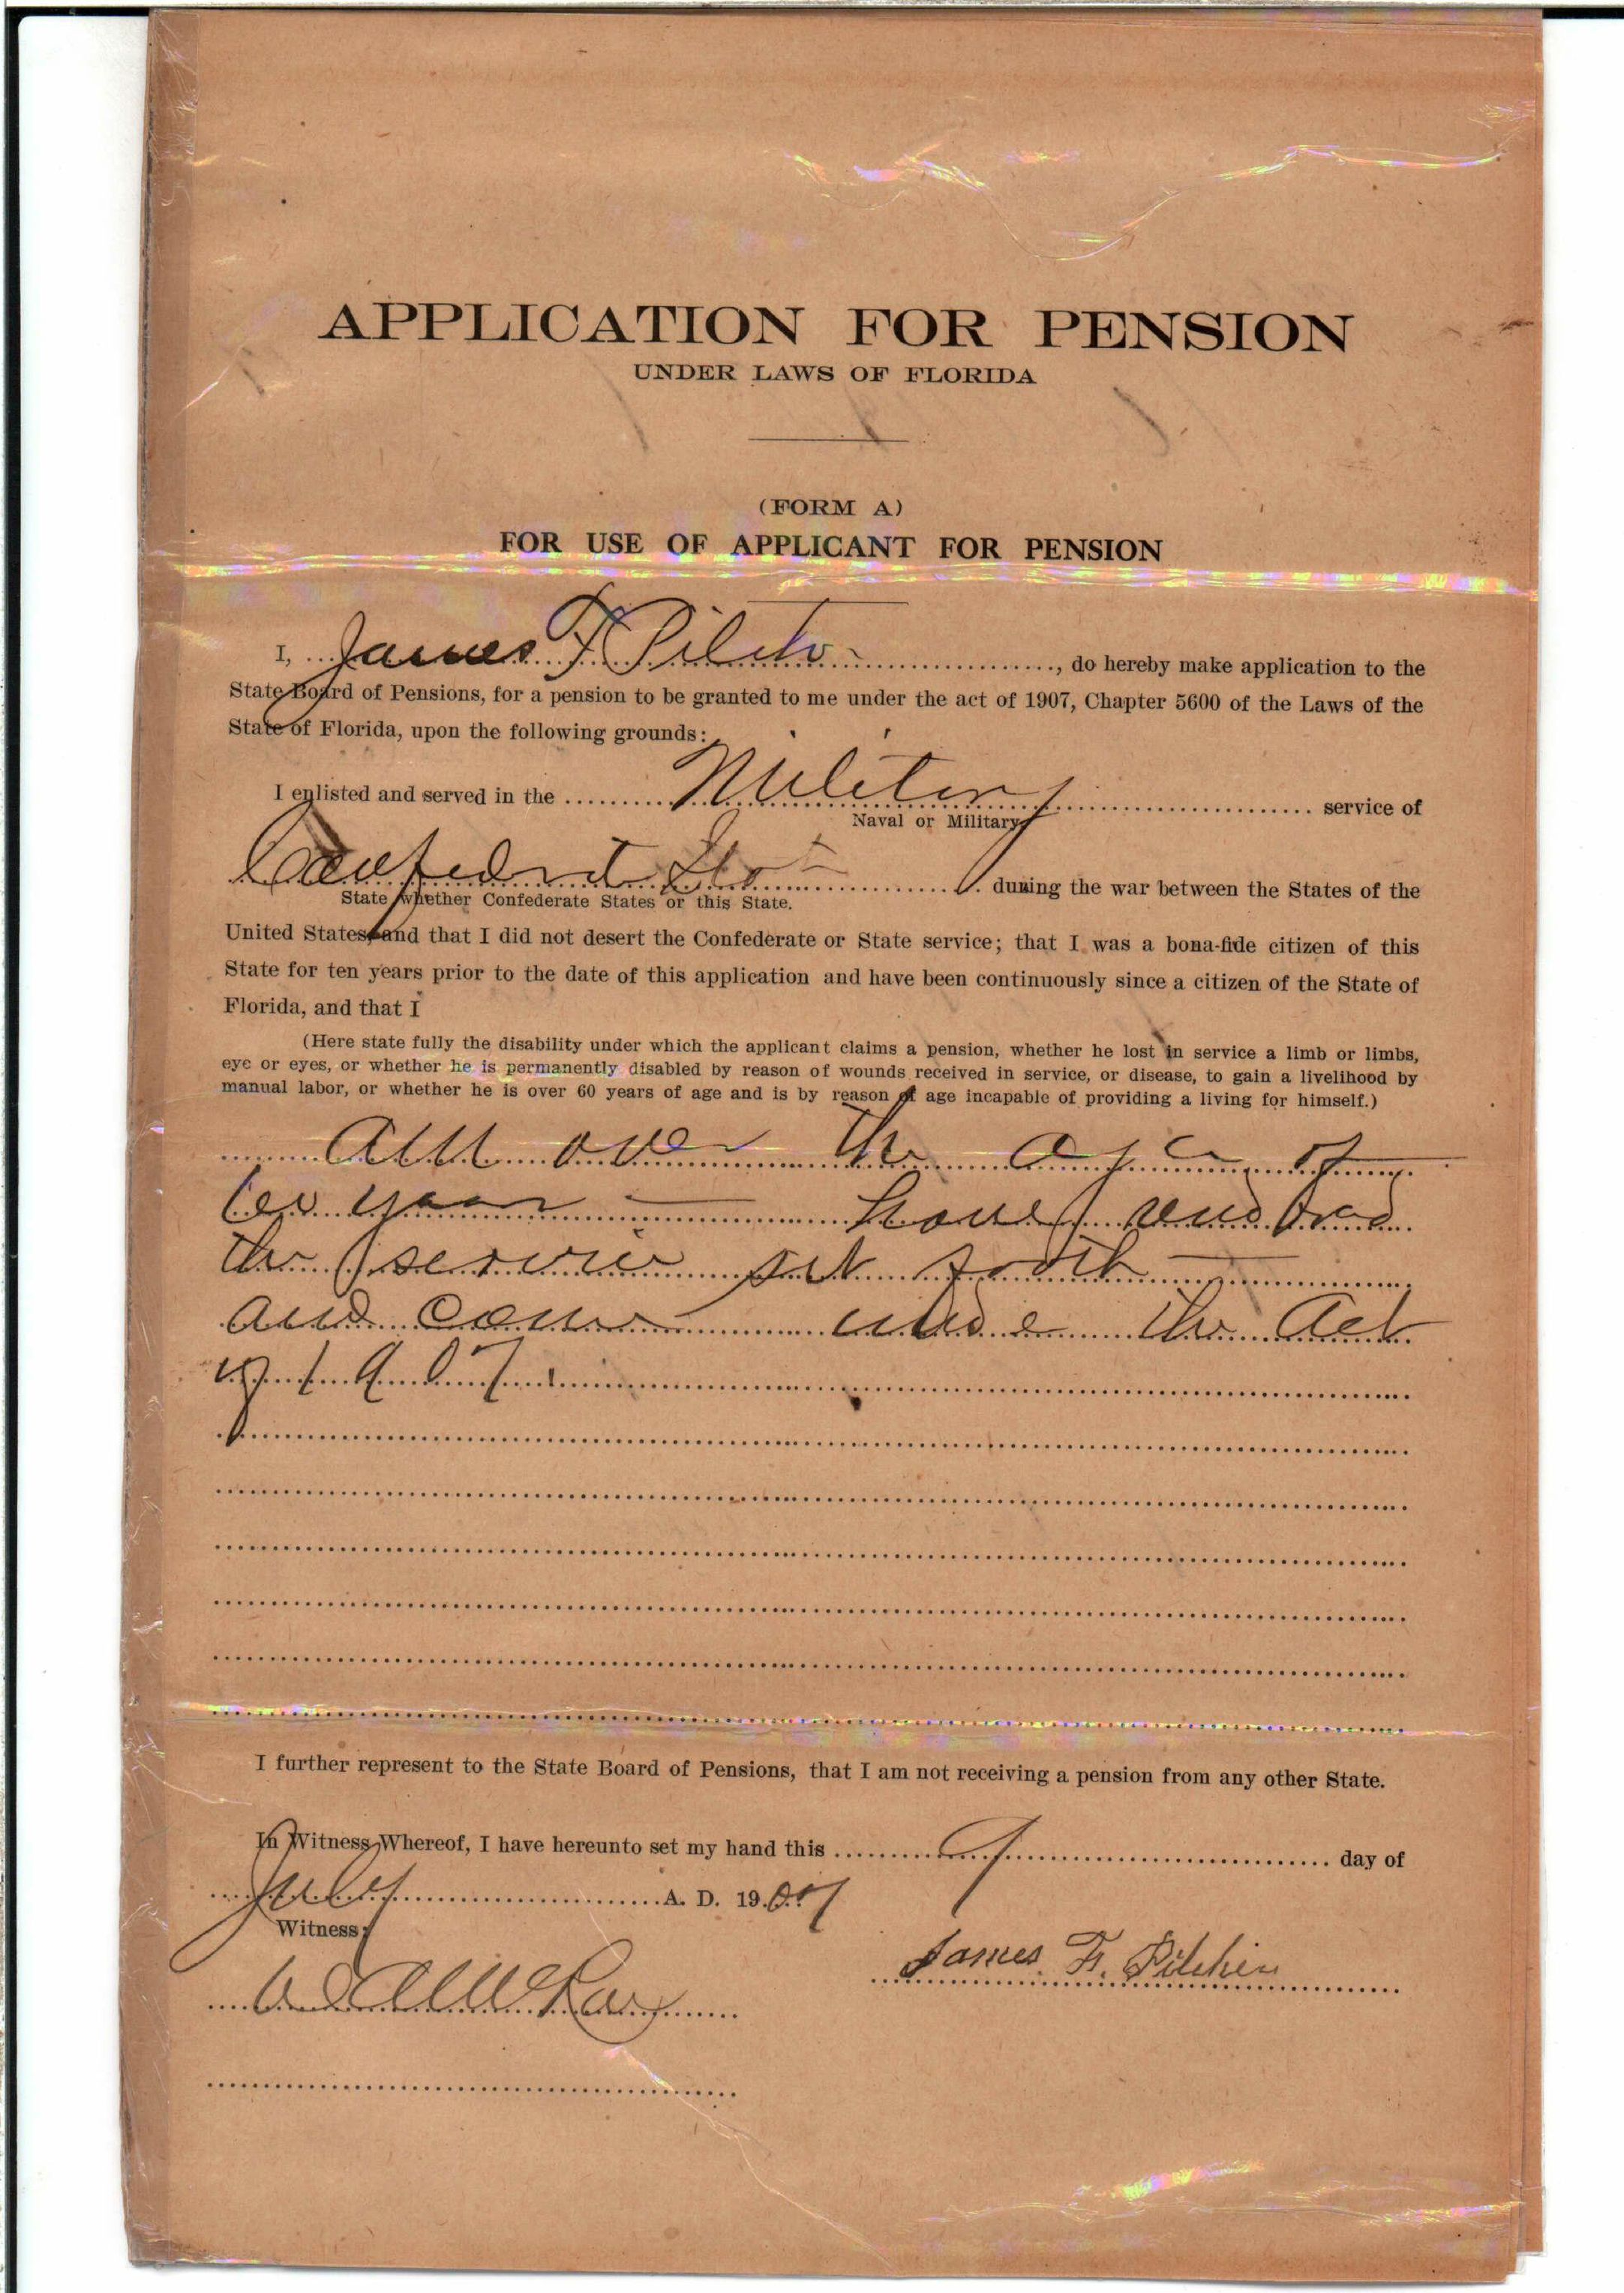 APPLICATION FOR PENSION
UNDER LAWS OF FLORIDA
(FORM A)
FOR USE OF APPLICANT FOR PENSION
I, James F, do hereby make application to the
State Board of Pensions, for a pension to be granted to me under the act of 1907, Chapter 5600 of the Laws of the
State of Florida, upon the following grounds:
I enlisted and served in the Military service of
Naval or Military
Confedrt during the war between the States of the
State whether Confederate States or this State.
United States, and that I did not desert the Confederate or State service; that I was a bona-fide citizen of this
State for ten years prior to the date of this application and have been continuously since a citizen of the State of
Florida, and that I
(Here state fully the disability under which the applicant claims a pension, whether he lost in service a limb or limbs,
eye or eyes, or whether he is permanently disabled by reason of wounds received in service, or disease, to gain a livelihood by
manual labor, or whether he is over 60 years of age and is by reason of age incapable of providing a living for himself.)
am over the age of
60 years have rendered
the service set forth
and come under the Act
of 1907.
I further represent to the State Board of Pensions, that I am not receiving a pension from any other State.
In Witness Whereof, I have hereunto set my hand this 9 day of
July A. D. 1907
Witness:
James F. Pilcher